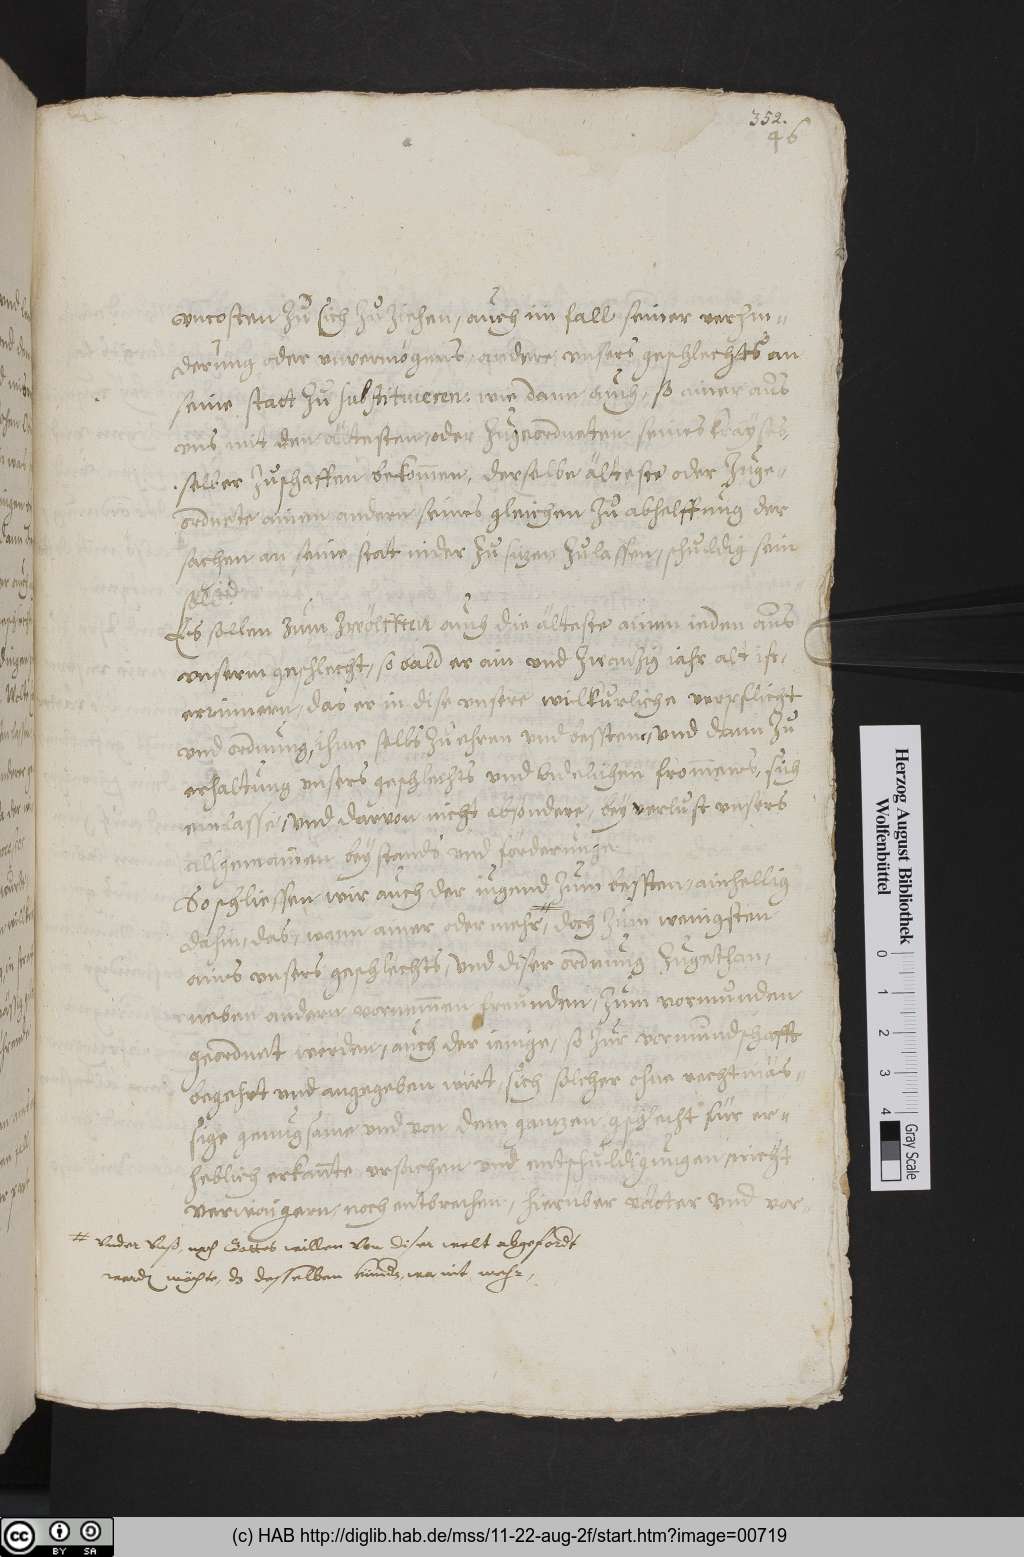 352.
46
vncosten zu sich zu ziehen, auch im fall seiner verhin-
derung oder vnvermögens, andere vnsers geschlechts an
seine statt zu substituieren: wie dann auch, so ainer aus
vns mit den ältesten, oder zugeordneten seines
selber zuschaffen bekommen, derselbe älteste oder zuge-
ordnete ainen andern seines gleichen zu abhelffung der
sachen an seine stat nider zu sizen zulassen, schuldig sein
soll.
Es sollen zum zwölfften auch die älteste ainen ieden aus
vnserm geschlecht, so bald er ain vnd zwanzig iahr alt ist,
erinnern, das er in dise vnsere wilkurliche verpflicht
vnd ordnung, ihme selbs zu ehren vnd besstem, vnd dann zu
erhaltung vnsers geschlechts vnd frommens, sich
einlasse, vnd darvon nicht absondere, bey verlust vnsers
allgemainen beystands vnd förderunge
So schliessen wir auch der iugend zum bessten, ainhellig
dahin, das, wann ainer oder mehr #, doch zum wenigsten
ains vnsers geschlechts, vnd diser ordnung zugethan,
neben andern vornemmen freunden, zum vormunden
geordnet werden, auch der ienige, so zur vormundschafft
begehrt vnd angegeben wirt, sich solcher ohne rechtmäs-
sige genugsame vnd von dem gantzen gschlecht für er-
heblich erkante vrsachen vnd entschuldigungen, nicht
verwaigern, noch entbrechen, hierüber vätter vnd vor-
# vnder vnß, nach Gottes willen von diser welt abgefordt
werden möchte, dz desselben kindz, wa nit mehr,
Herzog August Bibliothek
Wolfenbüttel
0 1 2 3 4
Gray Scale
cc BY SA
(c) HAB http://diglib.hab.de/mss/11-22-aug-2f/start.htm?image=00719